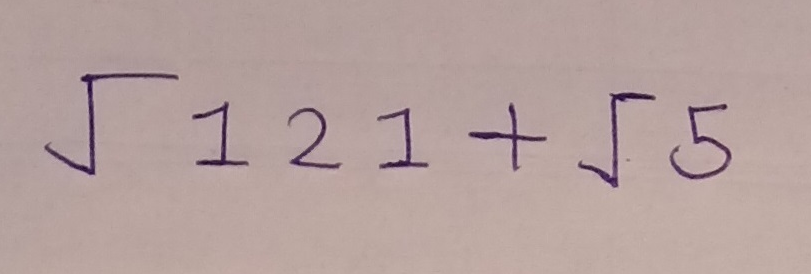 √121+√5